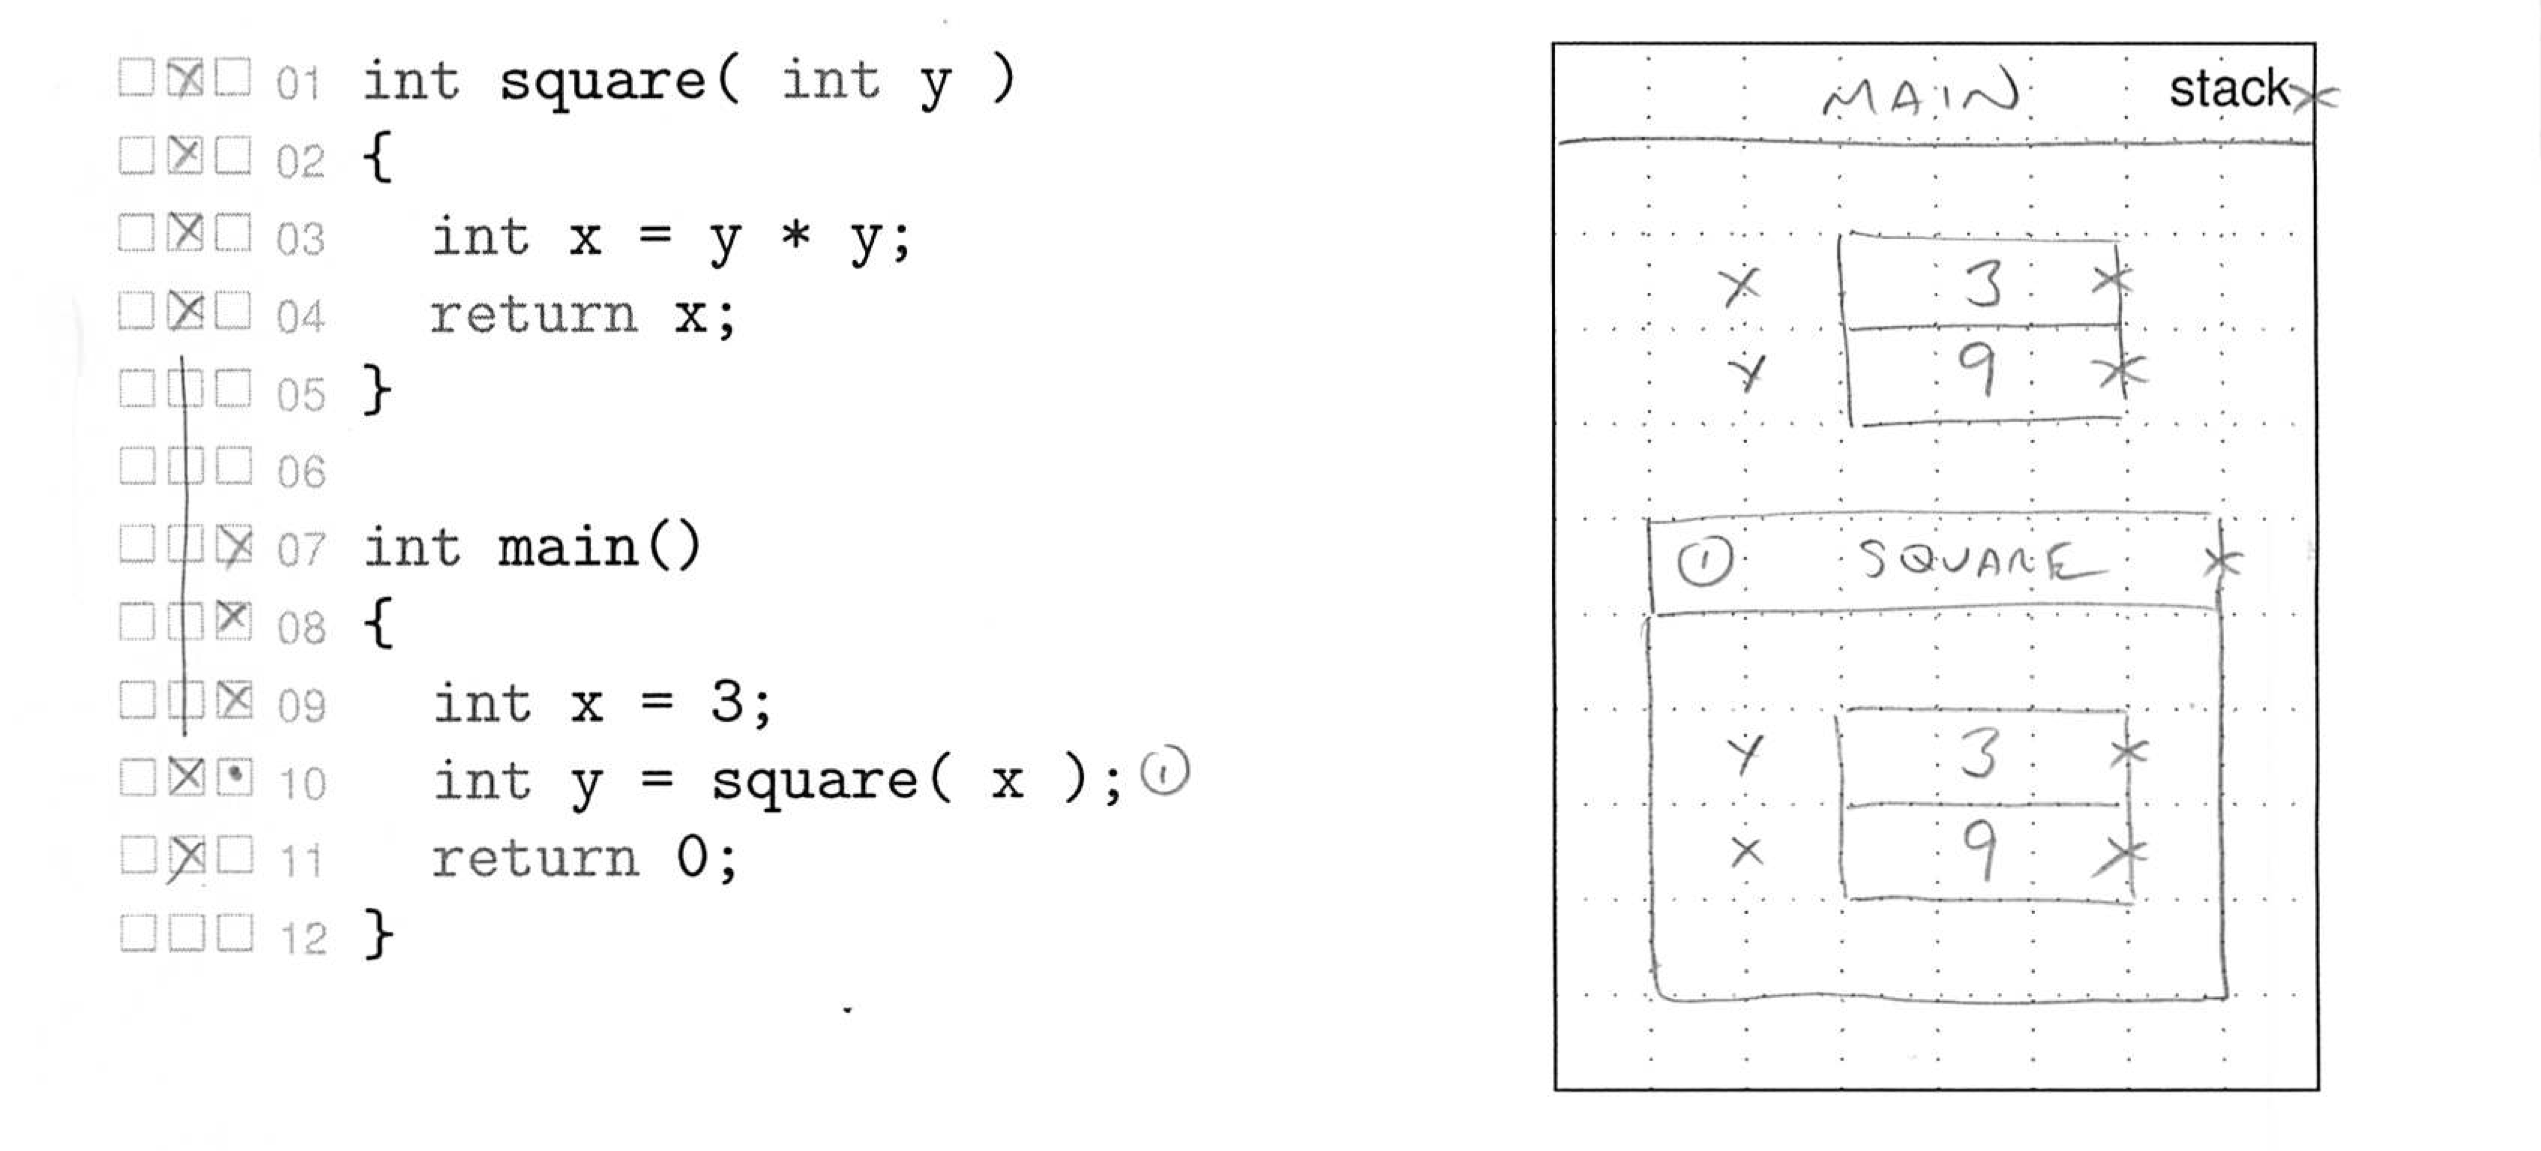 01 int square( int y )
02 {
03 int x = y * y;
04 return x;
05 }
06
07 int main()
08 {
09 int x = 3;
10 int y = square( x ); ①
11 return 0;
12 }
MAIN stack
X 3
Y 9
① SQUARE
Y 3
X 9